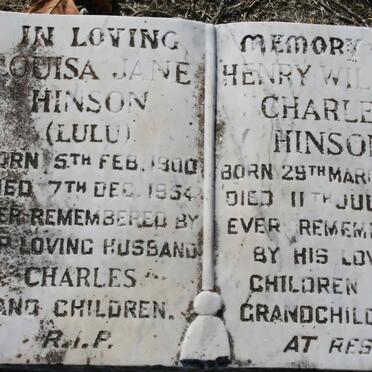 IN LOVING
OUISA JANE
HINSON
(LULU)
ORN 5TH FEB. 1900
ED 7TH DEC. 1954
ER REMEMBERED BY
R LOVING HUSBAND
CHARLES
AND CHILDREN.
R.I.P.
MEMORY
HENRY WIL
CHARLE
HINSON
BORN 29TH MAR
DIED 11TH JUL
EVER REMEME
BY HIS LOV
CHILDREN
GRANDCHILD
AT RES